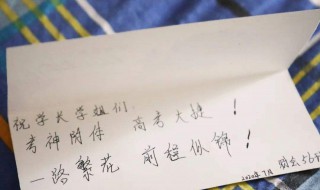 祝学长学姐们：
考神附体 高考大捷！
一路繁花 前程似锦！
2020年7月